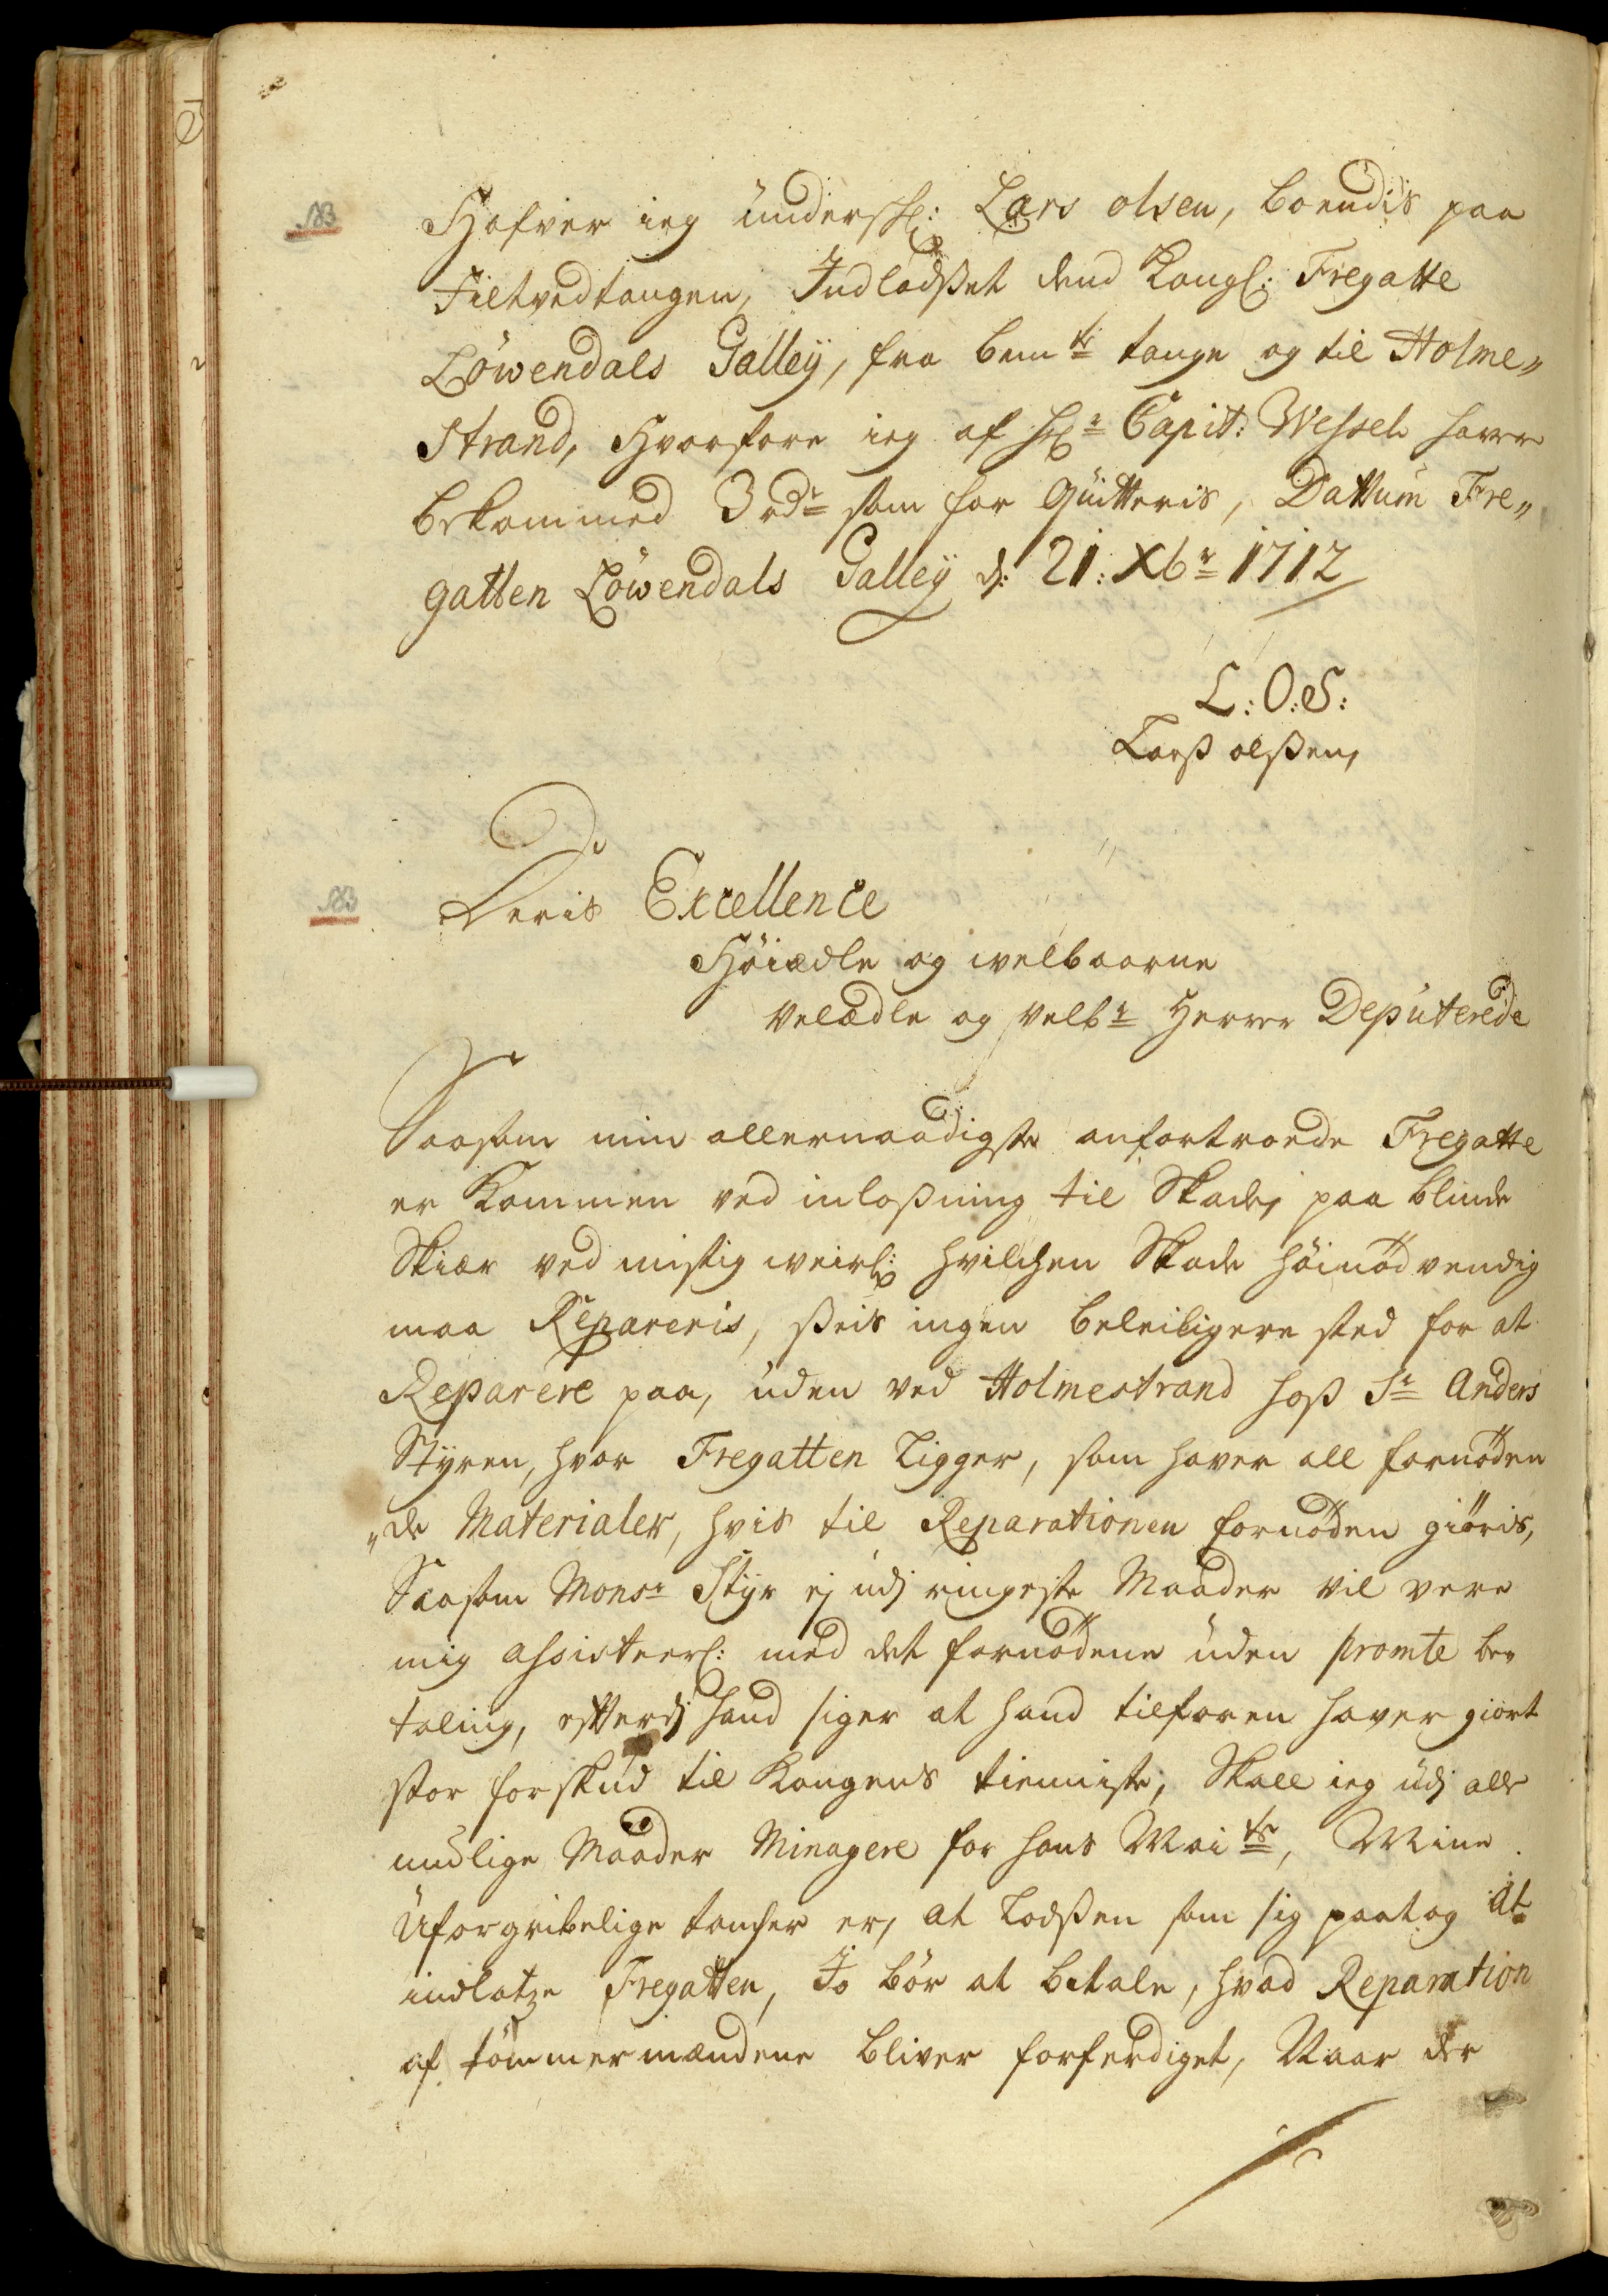 Hafver ieg underskr: Lars olsen, boendis paa
Filtvedtangen, Indlodsset dend Kongl: Fregatte
Löwendals Galleÿ, fra bemte tange og til Holme„
strand, Hvorfore ieg af Hr Capit: Wessel haver
bekommed 3 rdr som for quitteris, Dattum Fre„
gatten Löwendals Galleÿ d: 21: Xbr 1712
L: O: S:
Larss olssen,
Deris Excellence
Höiædle og welbaarne
Velædle og Velbr Herrer Deputerede
Saasom min allernaadigste anfortroede Fregatte
er Kommen ved inlossning til Skade, paa blinde
Skiær ved mistig weirl: hvilchen Skade höinödvendig
maa Repareris, sseis ingen beleiligere sted for at
Reparere paa, uden ved Holmestrand hoss Sr Anders
Styren, hvor Fregatten Ligger, som haver all fornöden
„de Materialer, hvis til Reparationen fornöden giöris,
Saasom Monsr Styr ej udj ringeste Maader vil vere
mig assisteerl: med det fornödene uden promte be„
taling, efftterdj hand siger at hand tilforen haver giort
stor forskud til Kongens tienniste, Skall ieg udj alle
mulige Maader Minagere for hans Maits, Mine
Uforgribelige tancher er, at Lodssen som sig paatog at
indlotze Fregatten, Jo bör at betale, hvad Reparation
af tömmermændene bliver forferdiget, Naar der